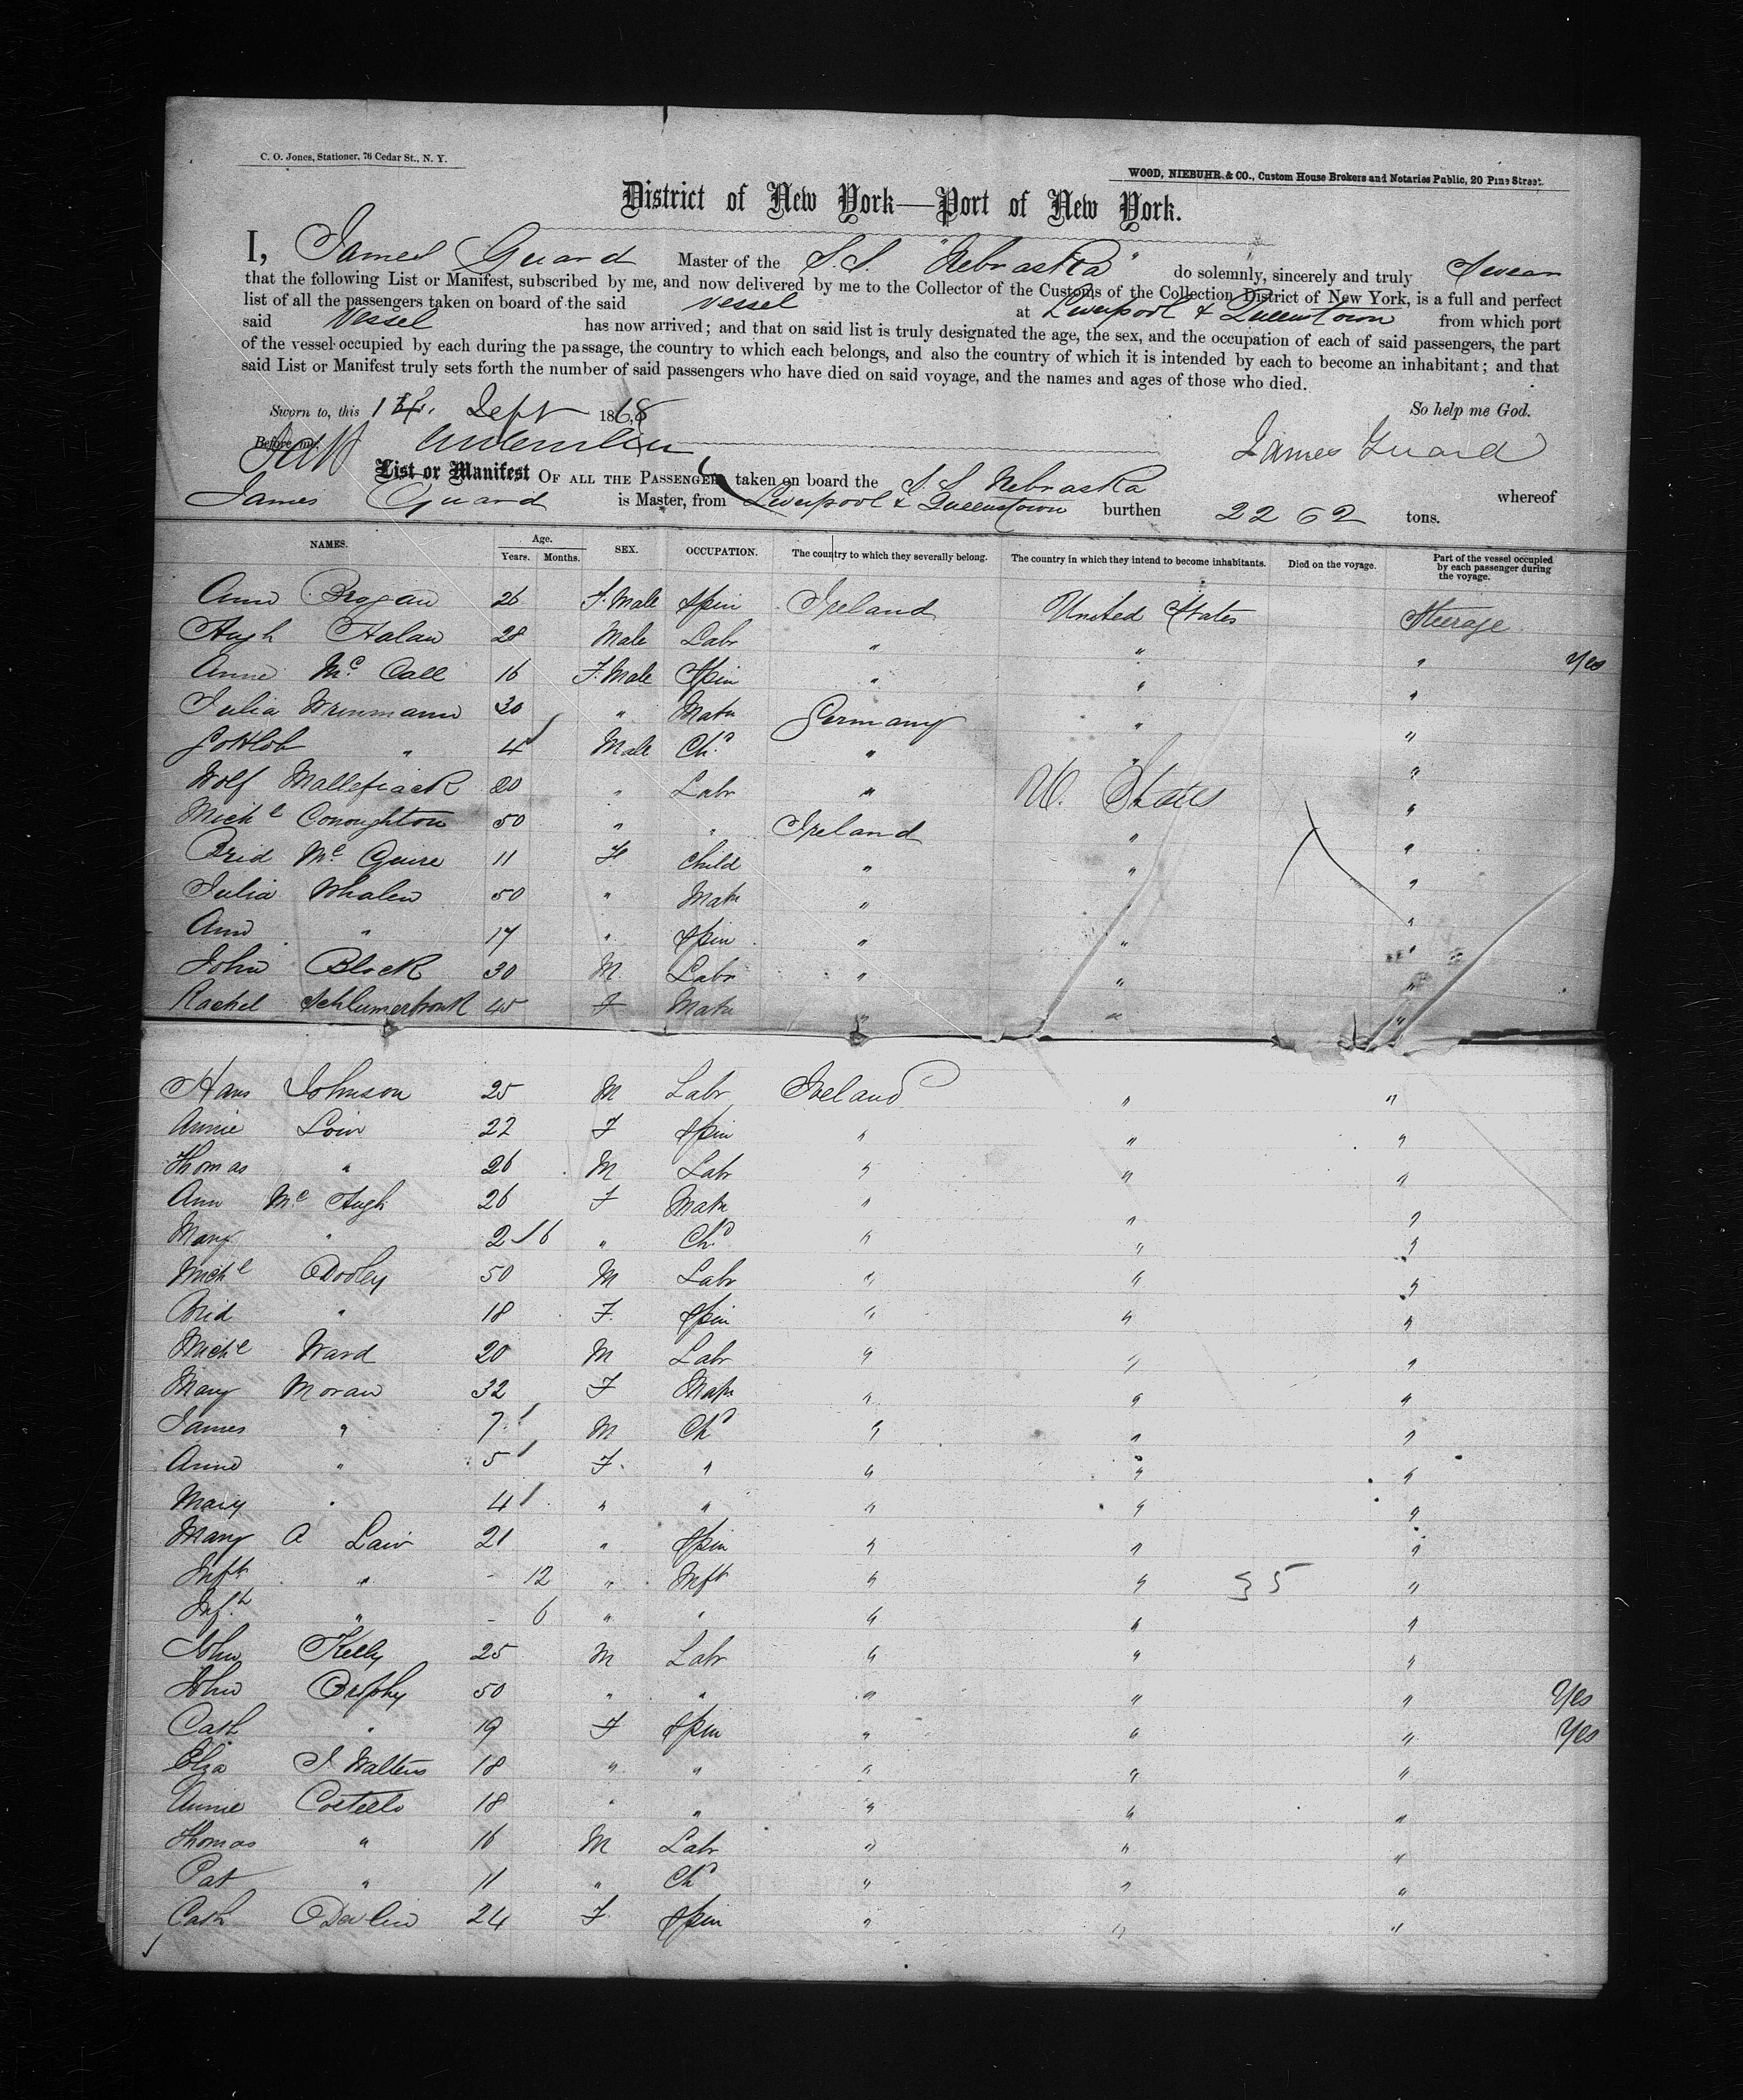 C. O. Jones, Stationer, 76 Cedar St., N. Y.
WOOD, NIEBUHR & CO., Custom House Brokers and Notaries Public, 20 Pine Street.
District of New York—Port of New York.
I, James Guard Master of the S.S. "Nebraska" do solemnly, sincerely and truly Swear
that the following List or Manifest, subscribed by me, and now delivered by me to the Collector of the Customs of the Collection District of New York, is a full and perfect
list of all the passengers taken on board of the said Vessel at Liverpool & Queenstown from which port
said Vessel has now arrived; and that on said list is truly designated the age, the sex, and the occupation of each of said passengers, the part
of the vessel occupied by each during the passage, the country to which each belongs, and also the country of which it is intended by each to become an inhabitant; and that
said List or Manifest truly sets forth the number of said passengers who have died on said voyage, and the names and ages of those who died.
Sworn to, this Sept 1868 So help me God.
Before me, James Guard
List or Manifest OF ALL THE PASSENGERS taken on board the S S Nebraska whereof
James Guard is Master, from Liverpool & Queenstown burthen 2262 tons.
NAMES. Age. Years. Months. SEX. OCCUPATION. The country to which they severally belong. The country in which they intend to become inhabitants. Died on the voyage. Part of the vessel occupied by each passenger during the voyage.
Ann Brogan 26 F. Male Spin Ireland United States Steerage
Hugh 28 Male Labr " " " Yes
Anne Mc Call 16 F. Male Spin " " "
Julia 30 " Matn Germany " "
Gottlob " 4 Male Chd " " "
Wolf 20 " Labr " U. States "
Michl Conoughton 50 " " Ireland " "
Brid Mc Guire 11 F Child " " "
Julia Whalen 50 " Matn " " "
Ann " 17 " Spin " " "
John Block 30 M Labr " " "
Rachel 45 F Matn " " "
Hans Johnson 25 M Labr Ireland " "
Annie 22 F Spin " " "
Thomas " 26 M Labr " " "
Ann Mc Hugh 26 F Matn " " "
Mary " 2 6 " Chd " " "
Michl ODooley 50 M Labr " " "
Brid " 18 F. Spin " " "
Michl Ward 20 M Labr " " "
Mary Moran 32 F Matn " " "
James " 7 M Chd " " "
Anne " 5 F. " " " "
Mary " 4 " " " " "
Mary A 21 " Spin " " "
Inft " - 12 " Inft " " 35 "
Inft " - 6 " " " " "
John Kelly 25 M Labr " " "
John 50 " " " " " Yes
Cath " 19 F Spin " " " Yes
Eliza J Walters 18 " " " " "
Annie Costello 18 " " " " "
Thomas " 16 M Labr " " "
Pat " 11 " Chd " " "
Cath ODevlin 24 F. Spin " " "